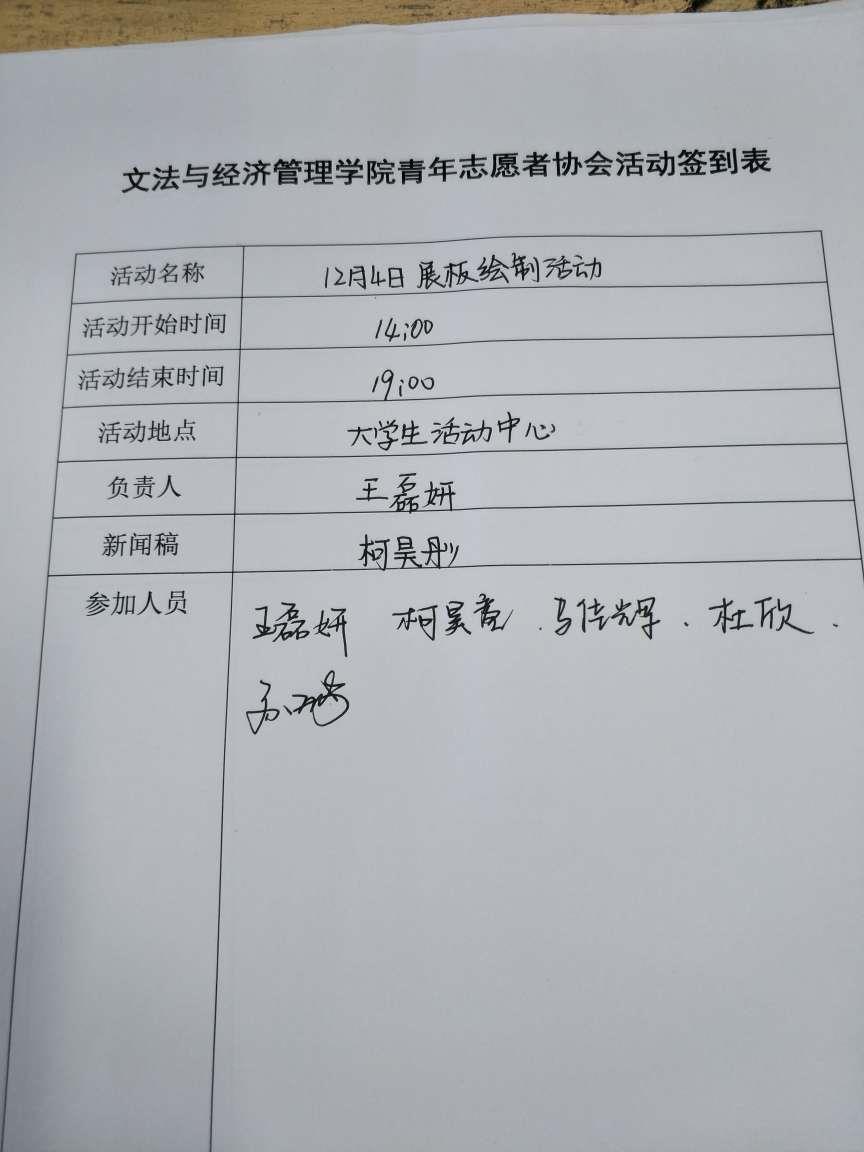 文法与经济管理学院青年志愿者协会活动签到表
活动名称 12月4日展板绘制活动
活动开始时间 14:00
活动结束时间 19:00
活动地点 大学生活动中心
负责人 王磊妍
新闻稿 柯昊彤
参加人员 王磊妍 柯昊 . 马佳辉 . 杜欣 .